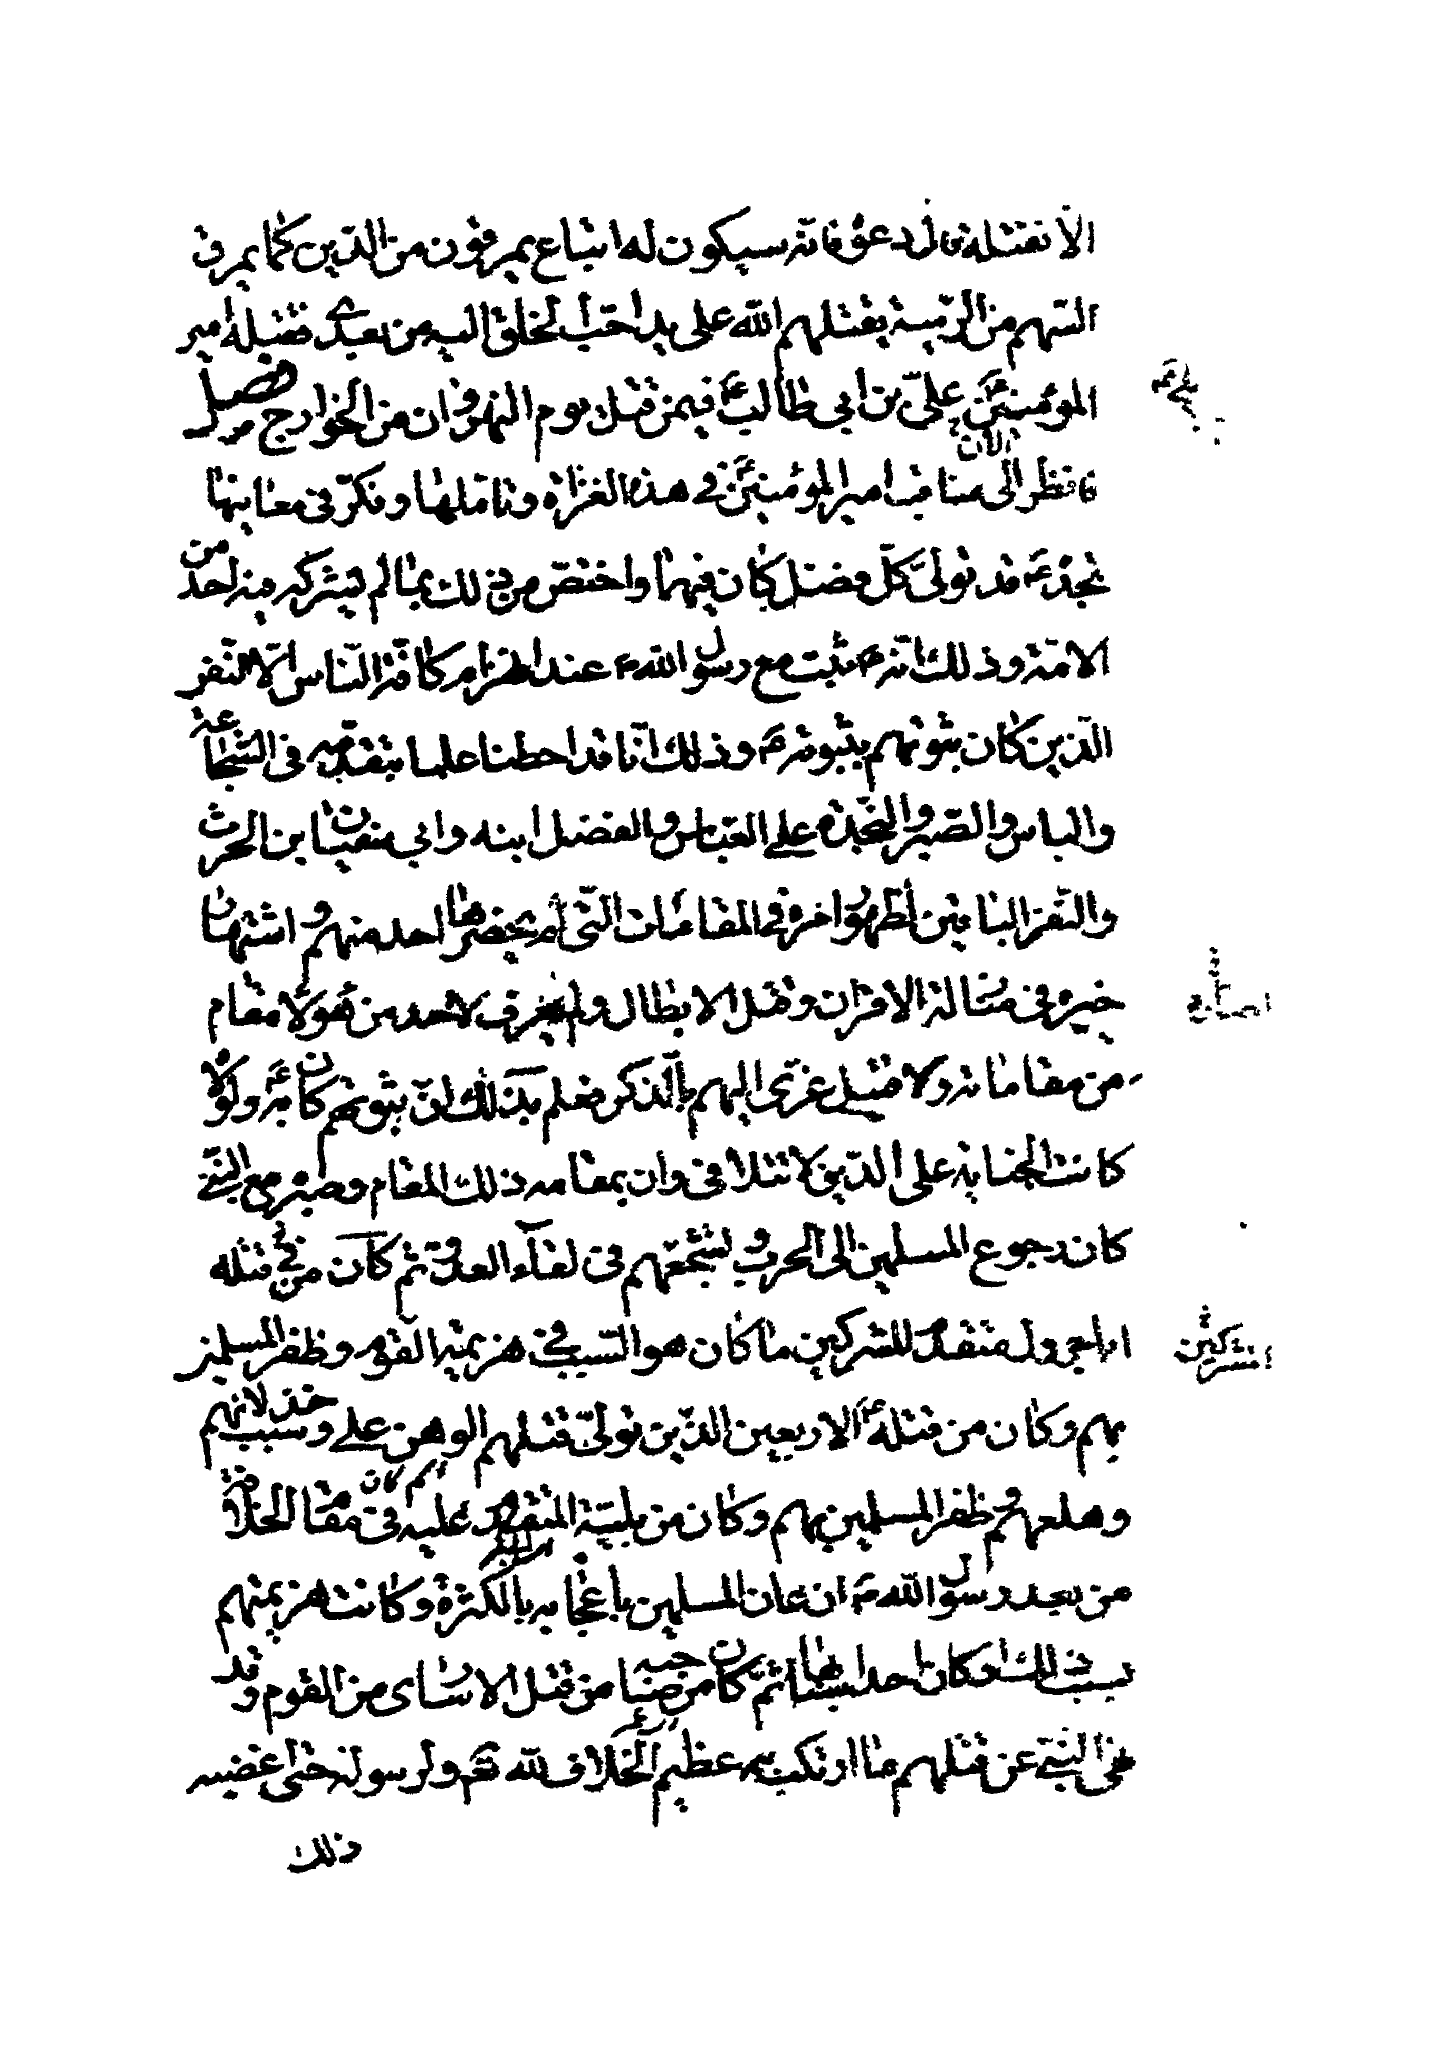 الا نقتله قال دعوه فانه سيكون له اتباع يمرقون من الدين كما يمرق
السهم من الرمية يقتلهم الله على يد احب الخلق اليه من بعدى فقتله امير
المؤمنين ع علي بن ابي طالب ع فيمن قتل يوم النهروان من الخوارج فصل
فانظر الان الى مناقب امير المؤمنين ع في هذه الغزاة وتاملها وفكر في معانيها
تجده ع قد تولى كل فضل كان فيها واختص من ذلك بما لم يشركه فيه احد من
الامة وذلك انه ع ثبت مع رسول الله ص عند انهزام كافة الناس الا النفر
الذين كان ثبوتهم بثبوته ع وذلك انا قد احطنا علما بتقدمه في الشجاعة
والباس والصبر والنجدة على العباس والفضل ابنه وابي سفيان بن الحرث
والنفر الباقين لظهور امره في المقامات التي لم يحضرها احد منهم واشتهار
خبره في منازلة الاقران وقتل الابطال ولم يعرف لاحد من هؤلاء مقام
من مقاماته ولا قتيل عزى اليهم بالذكر فعلم بذلك ان ثبوتهم كان به ع ولولاه
كانت الجناية على الدين لا تتلافى وان بمقامه ذلك المقام وصبره مع النبي
كان رجوع المسلمين الى الحرب وتشجعهم في لقاء العدو ثم كان من قتله
ابا جرول متقدم المشركين ما كان هو السبب في هزيمة القوم وظفر المسلمين
بهم وكان من قتله ع الاربعين الذين تولى قتلهم الوهن على وسبب خذلانهم
وهلعهم وظفر المسلمين بهم وكان من بلية المتقدم عليه في مقام الخلافة
من بعد رسول الله ص ان عان المسلمين باعجابه بالكثرة وكانت هزيمتهم
بسبب ذلك او كان احد اسبابها ثم كان من صاحبه من قتل الاسارى من القوم وقد
نهى النبي عن قتلهم ما ارتكب به عظيم الخلاف لله تع ولرسوله حتى اغضبه
ذلك